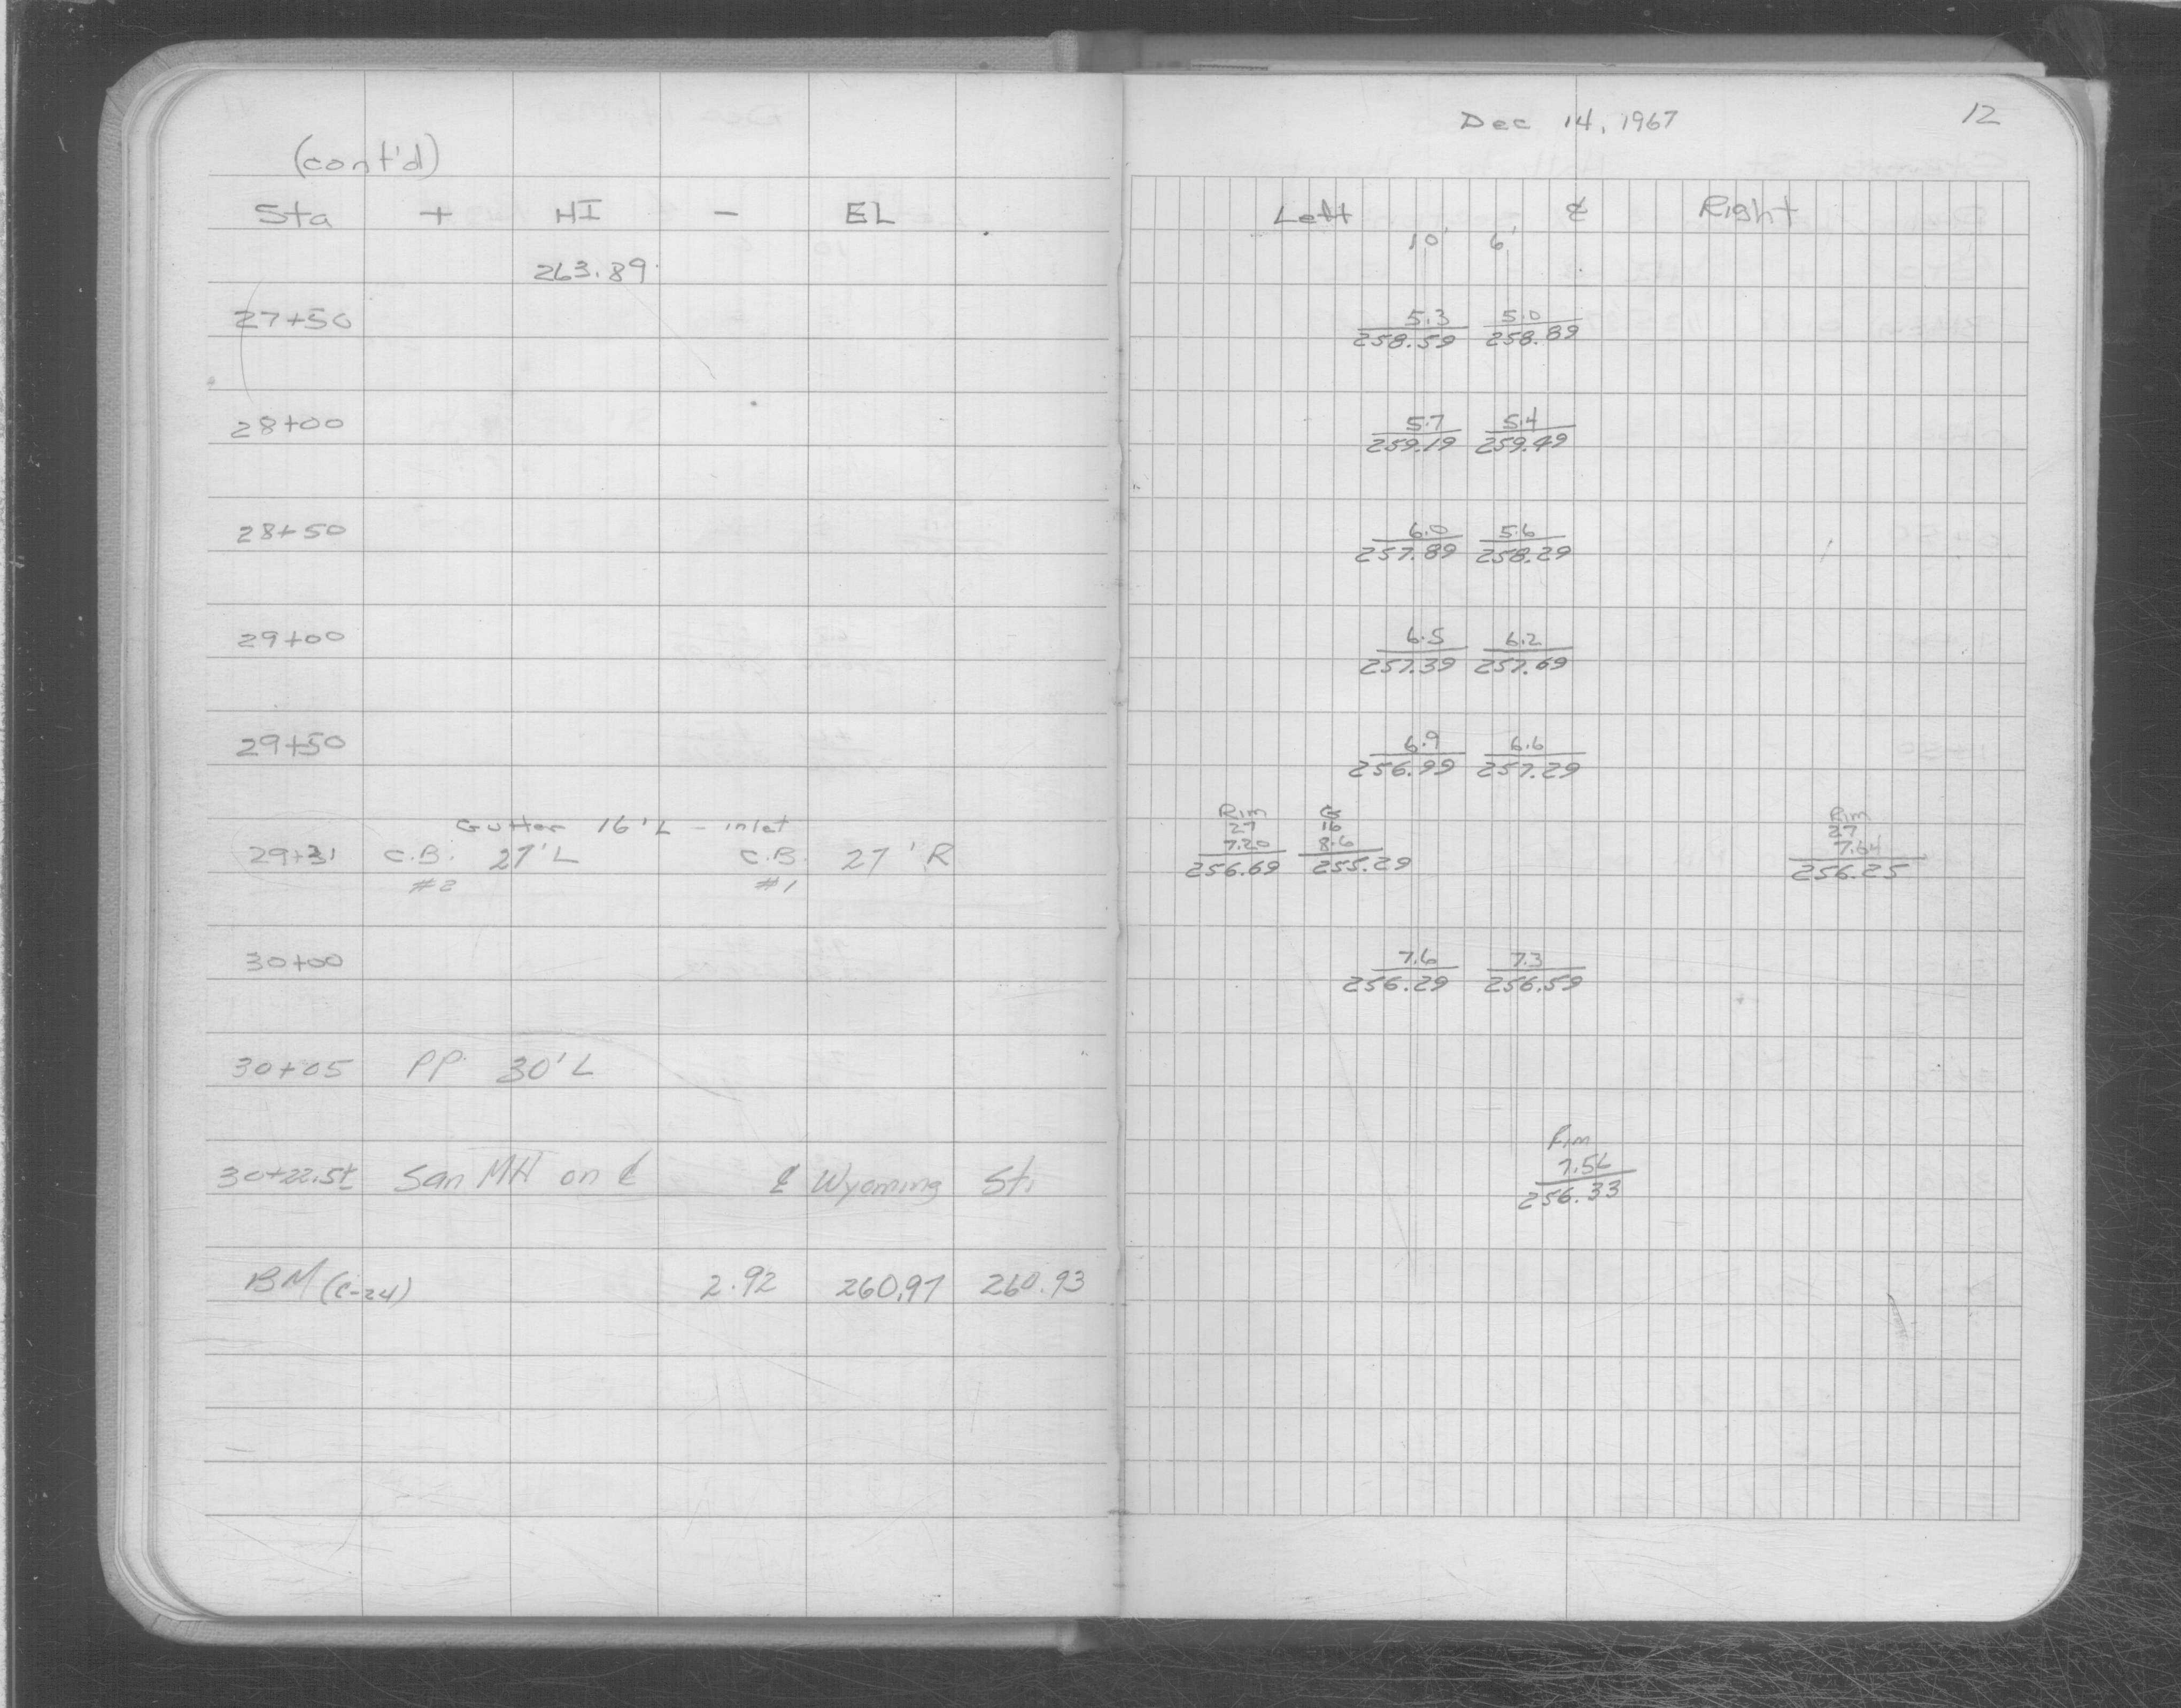 (cont'd)
Sta + HI - EL
263.89
27+50
28+00
28+50
29+00
29+50
Gutter 16'L - inlet
29+31 C.B. 27'L C.B. 27'R
#2 #1
30+00
30+05 PP. 30'L
30+22.5± San MH on ℄ ℄ Wyoming St.
BM (C-24) 2.92 260.97 260.93
Dec 14, 1967 12
Left ℄ Right
10' 6'
5.3 5.0
258.59 258.89
5.7 5.4
259.19 259.49
6.0 5.6
257.89 258.29
6.5 6.2
257.39 257.69
6.9 6.6
256.99 257.29
Rim G Rim
27 16 27
7.20 8.6 7.64
256.69 255.29 256.25
7.6 7.3
256.29 256.59
Rim
7.56
256.33